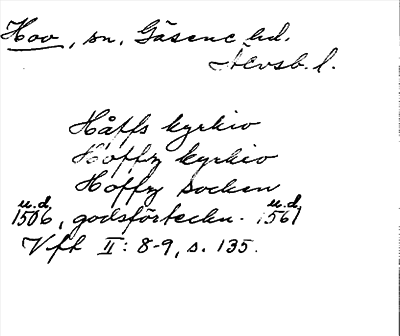 Hov, sn, Gäsene hd.
Älvsb. l.
Håffs kyrkio
Hoffz kyrkio
Hoffz socken
u.d. u.d.
1506, godsförteckn. 1561
Vfl II: 8-9, s. 135.